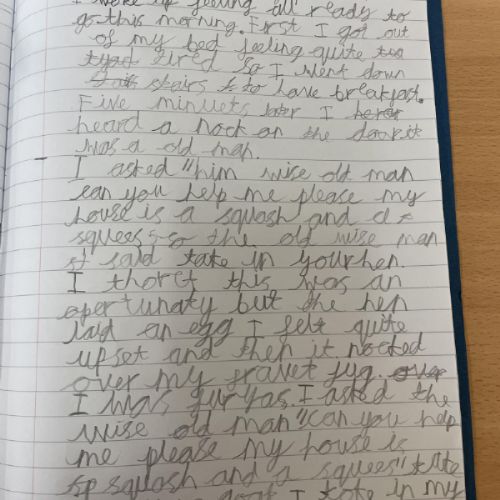 I woke up feeling all ready to
go this morning. First I got out
of my bed feeling quite
tired so I went down
stairs to have breakfast.
Five minuets later I
heard a nock on the door it
was a old man.
I asked "him wise old man
can you help me please my
house is a squash and a
squees so the old wise man
said take in your hen.
I thoret this was an
opertunaty but the hen
laid an egg I felt quite
upset and then it nocked
over my fravet jug. over
I was furyas. I asked the
wise old man "can you help
me please my house is
squash and a squees" take
goat I take in my